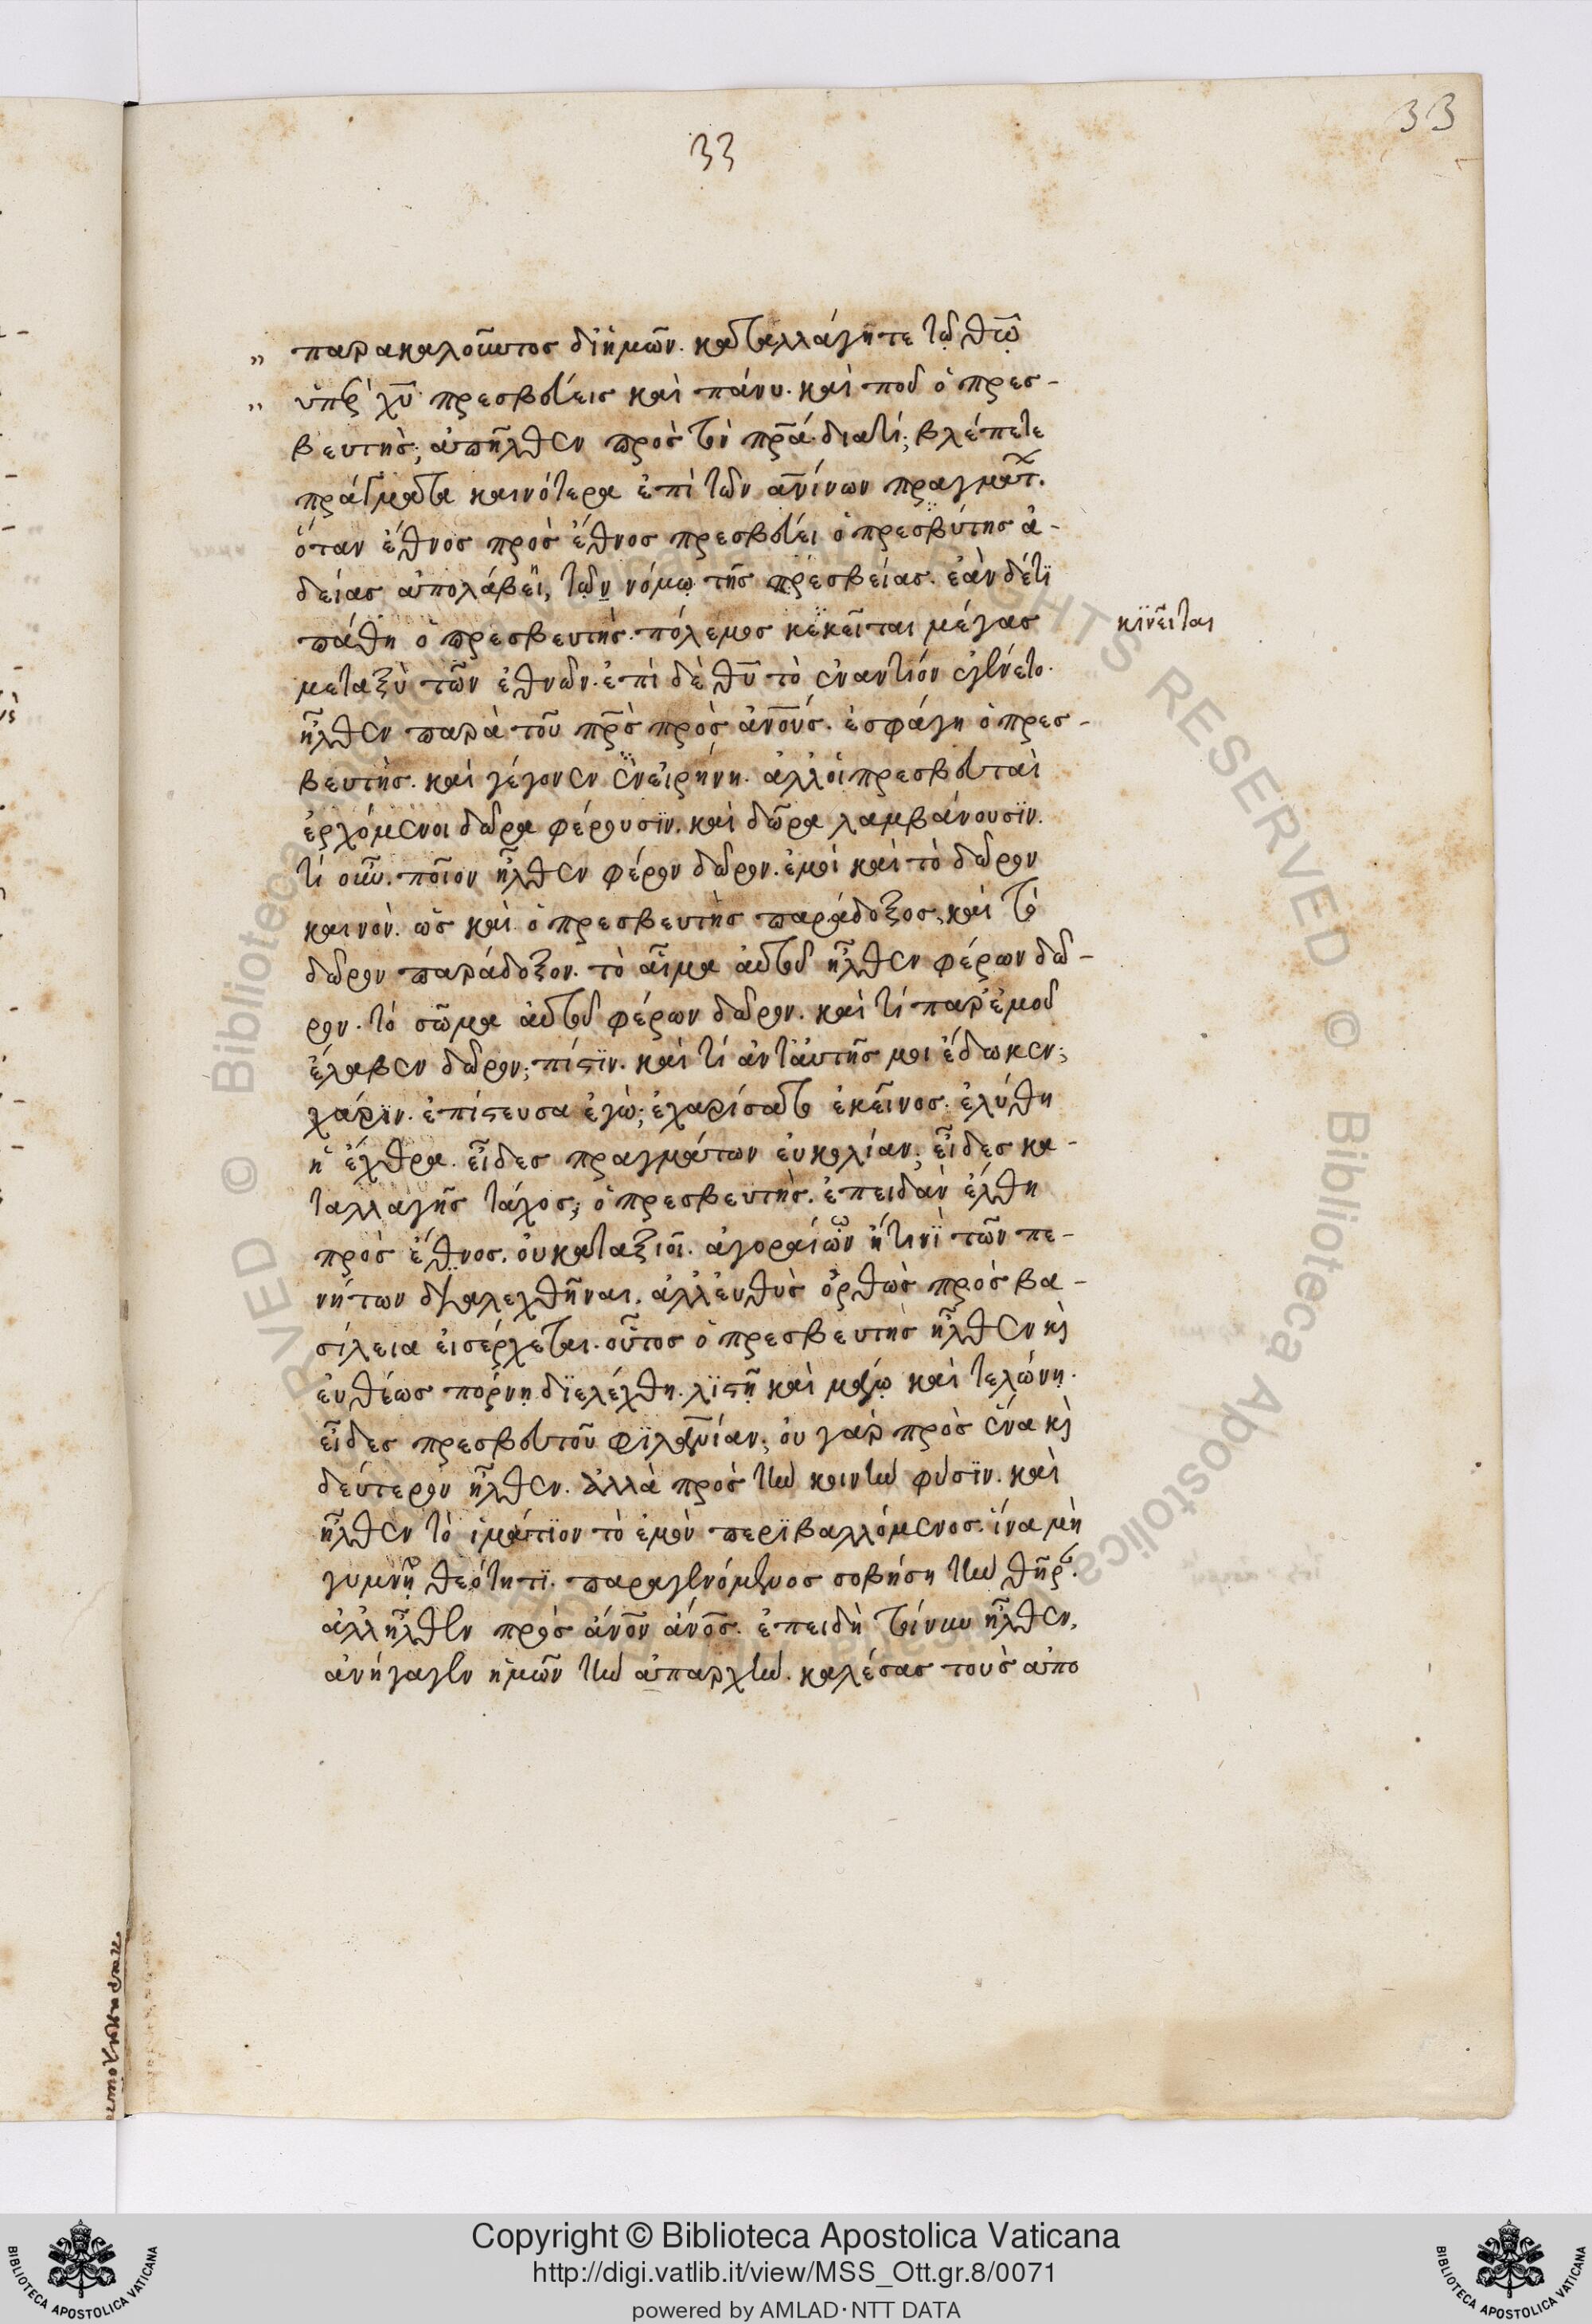 33
33
„ παρακαλοῦντος δι ἡμῶν. καταλλάγητε τῷ θῶ̣
„ ὑπὲρ χῦ πρεσβεύεις καὶ πάνυ. καὶ ποῦ ὁ πρεσ-
βευτὴς; ἀπῆλθεν πρὸς τὸν πρ̅α. διατί; βλέπετε
πράγματα καινότερα ἐπὶ τῶν ἀνίνων πραγμάτ.
ὅταν ἔθνος πρὸς ἔθνος πρεσβεύει ὁ πρεσβύτης ἀ-
δείας ἀπολάβει, τῶν νόμῳ τῆς πρεσβείας. ἐὰν δέ τϊ
πάθη ὁ πρεσβευτὴς. πόλεμος κεκεῖται μέγας
κϊνεῖται
μεταξὺ τῶν ἐθνῶν. ἐπὶ δὲ θῦ τὸ ἐναντιόν ἐγένετο.
ἦλθεν παρὰ τοῦ πρ̅ς πρὸς ἀνοὺς. ἐσφάγη ὁ πρεσ-
βευτὴς. καὶ γέγονεν ἐν εἰρήνη. ἀλλ οἱ πρεσβευταὶ
ἐρχόμενοι δῶρα φέρουσϊν. καὶ δῶρα λαμβάνουσϊν.
τί οὖν. ποῖον ἦλθεν φέρον δῶρον. ἐμοὶ καὶ τὸ δῶρον
καινὸν. ὡς καὶ ὁ πρεσβευτὴς παράδοξος, καὶ τὸ
δῶρον παράδοξον. τὸ αἷμα αὐτοῦ ἦλθεν φέρων δῶ-
ρον. τὸ σῶμα αὐτοῦ φέρων δῶρον. καὶ τί παρ ἐμοῦ
ἔλαβεν δῶρον; πίστϊν. καὶ τί ἀντ αὐτῆς μοι ἔδωκεν;
χάρϊν. ἐπίστευσα ἐγὼ; ἐχαρίσατο ἐκεῖνος. ἐλύθη
ἡ ἔχθρα. εἶδες πραγμάτων εὐκολίαν; εἶδες κα-
ταλλαγῆς τάχος; ὁ πρεσβευτὴς. ἐπειδὰν ἔλθη
πρὸς ἔθνος. οὐ καταξιοῖ. ἀγοραίων ἤ τινϊ τῶν πε-
νήτων διαλεχθῆναι. ἀλλ εὐθὺς ὀρθῶς πρὸς βα-
σίλεια εἰσέρχεται. οὗτος ὁ πρεσβευτὴς ἦλθεν κὶ
εὐθέως πόρνῃ. δϊελέχθη. λϊστῇ καὶ μάγῳ καὶ τελώνῃ.
εἶδες πρεσβευτοῦ φϊλανίαν; οὐ γὰρ πρὸς ἕνα κὶ
δεύτερον ἦλθεν. ἀλλὰ πρὸς τὴν κοινὴν φύσϊν. καὶ
ἦλθεν τὸ ἱμάτϊον τὸ ἐμὸν περϊβαλλόμενος. ἵνα μὴ
γυμνῇ θεότητϊ. παραγενόμενος σοβήση τὴν θῆρ.
ἀλλ ἦλθεν πρὸς ἄνον ἄνος. ἐπειδὴ τοίνυν ἦλθεν,
ἀνήγαγεν ἡμῶν τὴν ἀπαρχὴν. καλέσας τοὺς ἀπο
Copyright © Biblioteca Apostolica Vaticana
http://digi.vatlib.it/view/MSS_Ott.gr.8/0071
powered by AMLAD·NTT DATA